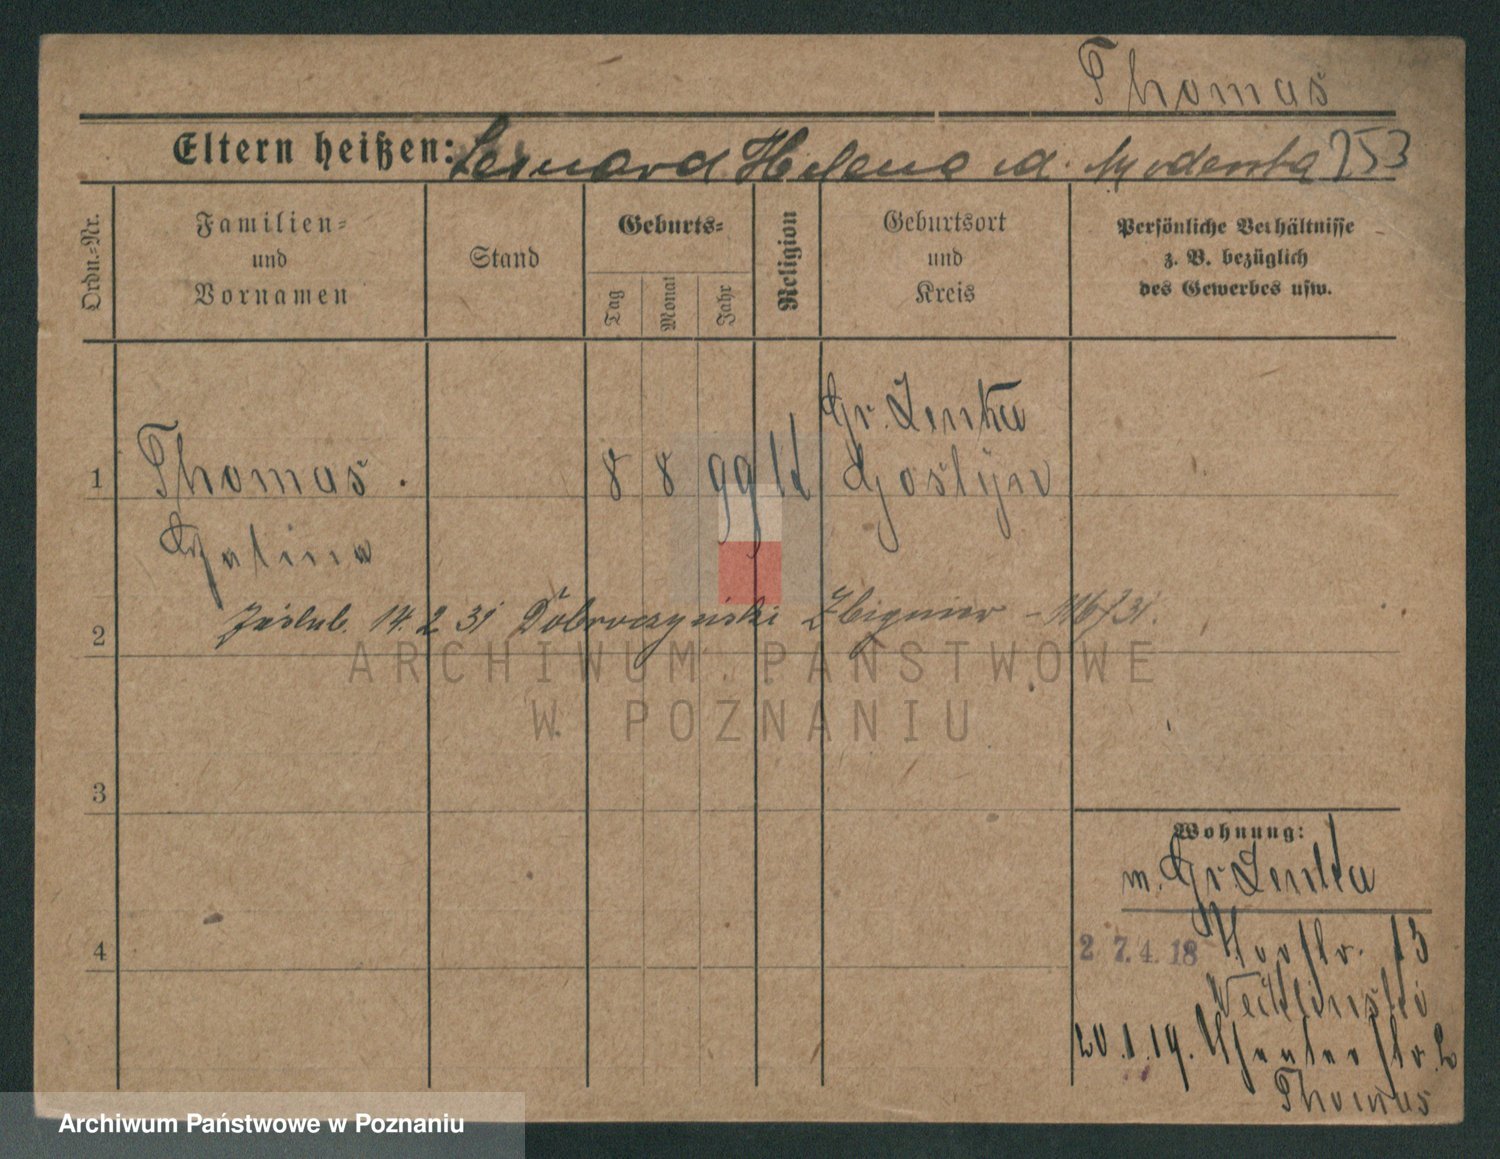 Thomas
Eltern heißen: Leonard Helena id. Modenska 253
Ordn.-Nr.
Familien-
und
Vornamen
Stand
Geburts-
Tag
Monat
Jahr
Religion
Geburtsort
und
Kreis
Persönliche Verhältnisse
z. B. bezüglich
des Gewerbes usw.
1 Thomas. 8 8 99 kt Gr. Lenka
Gostyn
Halina
Zaślub. 14. 2 31 Dobroczyński Zbigniew - 116/31.
2
ARCHIWUM PAŃSTWOWE
W POZNANIU
3
Wohnung:
m. Gr. Lenka
4
2 7. 4. 18 str. 13
20. 1. 19. Theaterstr. 2
Thomas
Archiwum Państwowe w Poznaniu